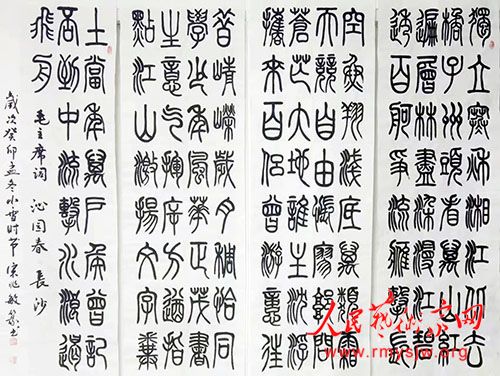 獨立寒秋湘江北去
橘子洲頭看萬山紅
遍層林盡染漫江碧
透百舸爭流鷹擊長
空魚翔淺底萬類霜
天競自由悵寥廓問
蒼茫大地誰主沉浮
攜來百侶曾游憶往
昔崢嶸歲月稠恰同
學少年風華正茂書
生意气揮斥方遒指
點江山激揚文字糞
土當年萬戶侯曾記
否到中流擊水浪遏
飛舟
毛主席詞 沁园春 長沙
歲次癸卯孟冬小雪时节
人民艺术家网
www.rmysjw.org